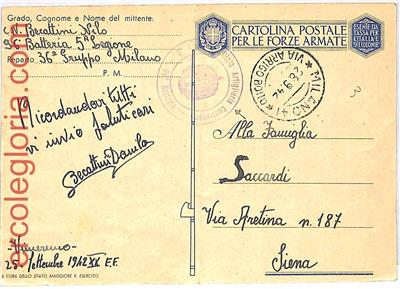 Grado, Cognome e Nome del mittente:
C.N. Becattini Nilo
Batteria 5ª Legione
Reparto 36° Gruppo Milano
P. M.
Ricordandovi tutti
vi invio saluti cari
Becattini Danilo
25 Settembre 1942 XX E.F.
A CURA DELLO STATO MAGGIORE R. ESERCITO
CARTOLINA POSTALE
PER LE FORZE ARMATE
ESENTE DA
TASSA PER
L'ITALIA E
SUE COLONIE
MILANO 41
VIA ARRIGO BOITO
Alla Famiglia
Saccardi
Via Aretina n. 187
Siena
ercolegloria.com